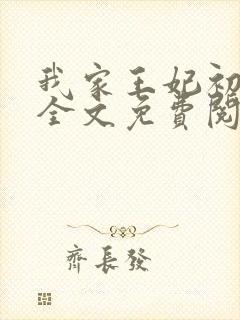 我家王妃初
全文免費閱
齊長發